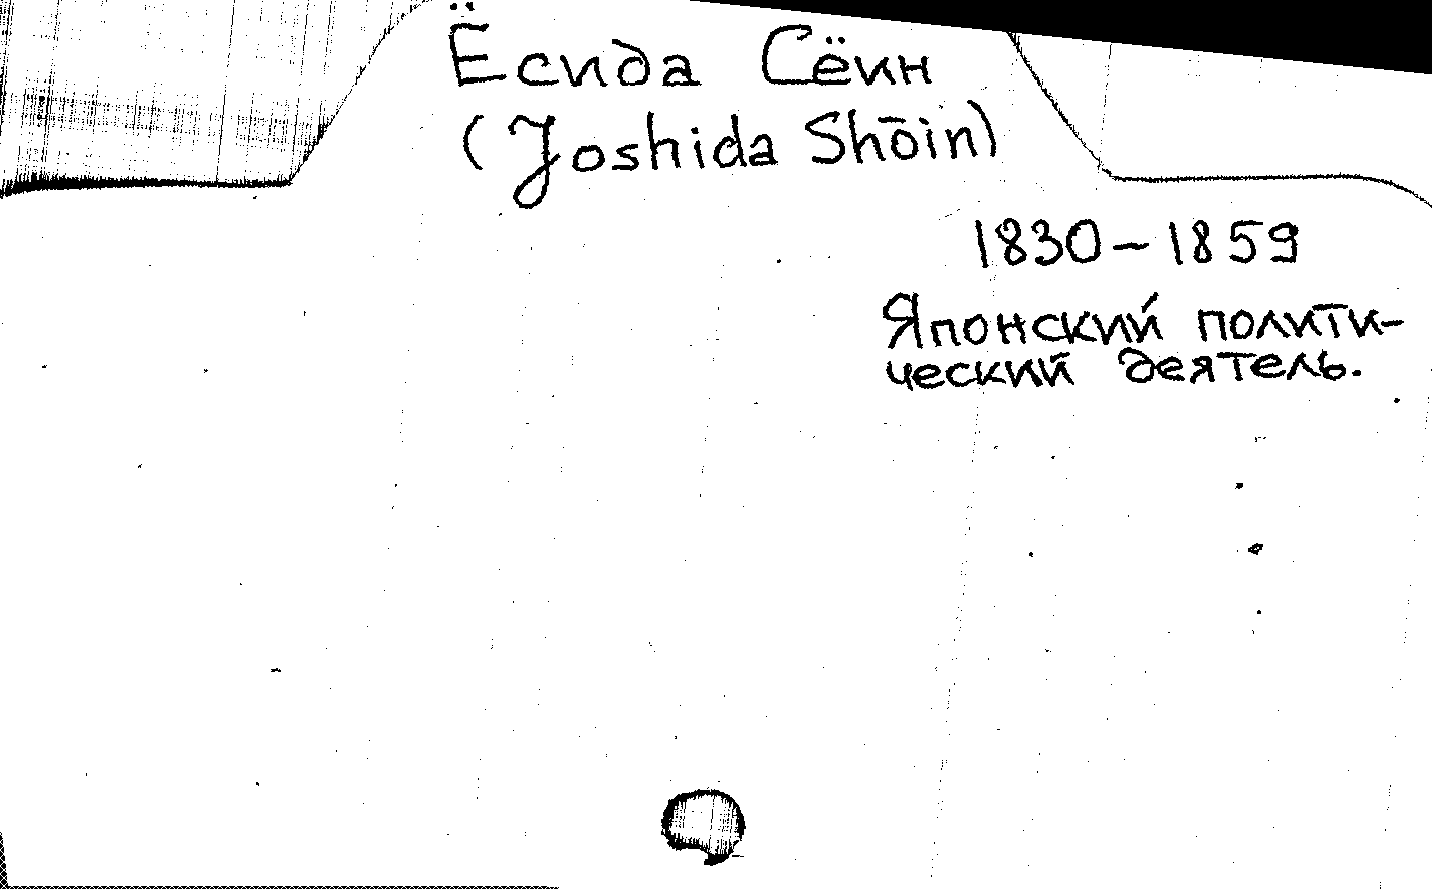 Ёсида Сёин
(Yoshida Shōin)
1830-1859
Японский полити-
ческий деятель.